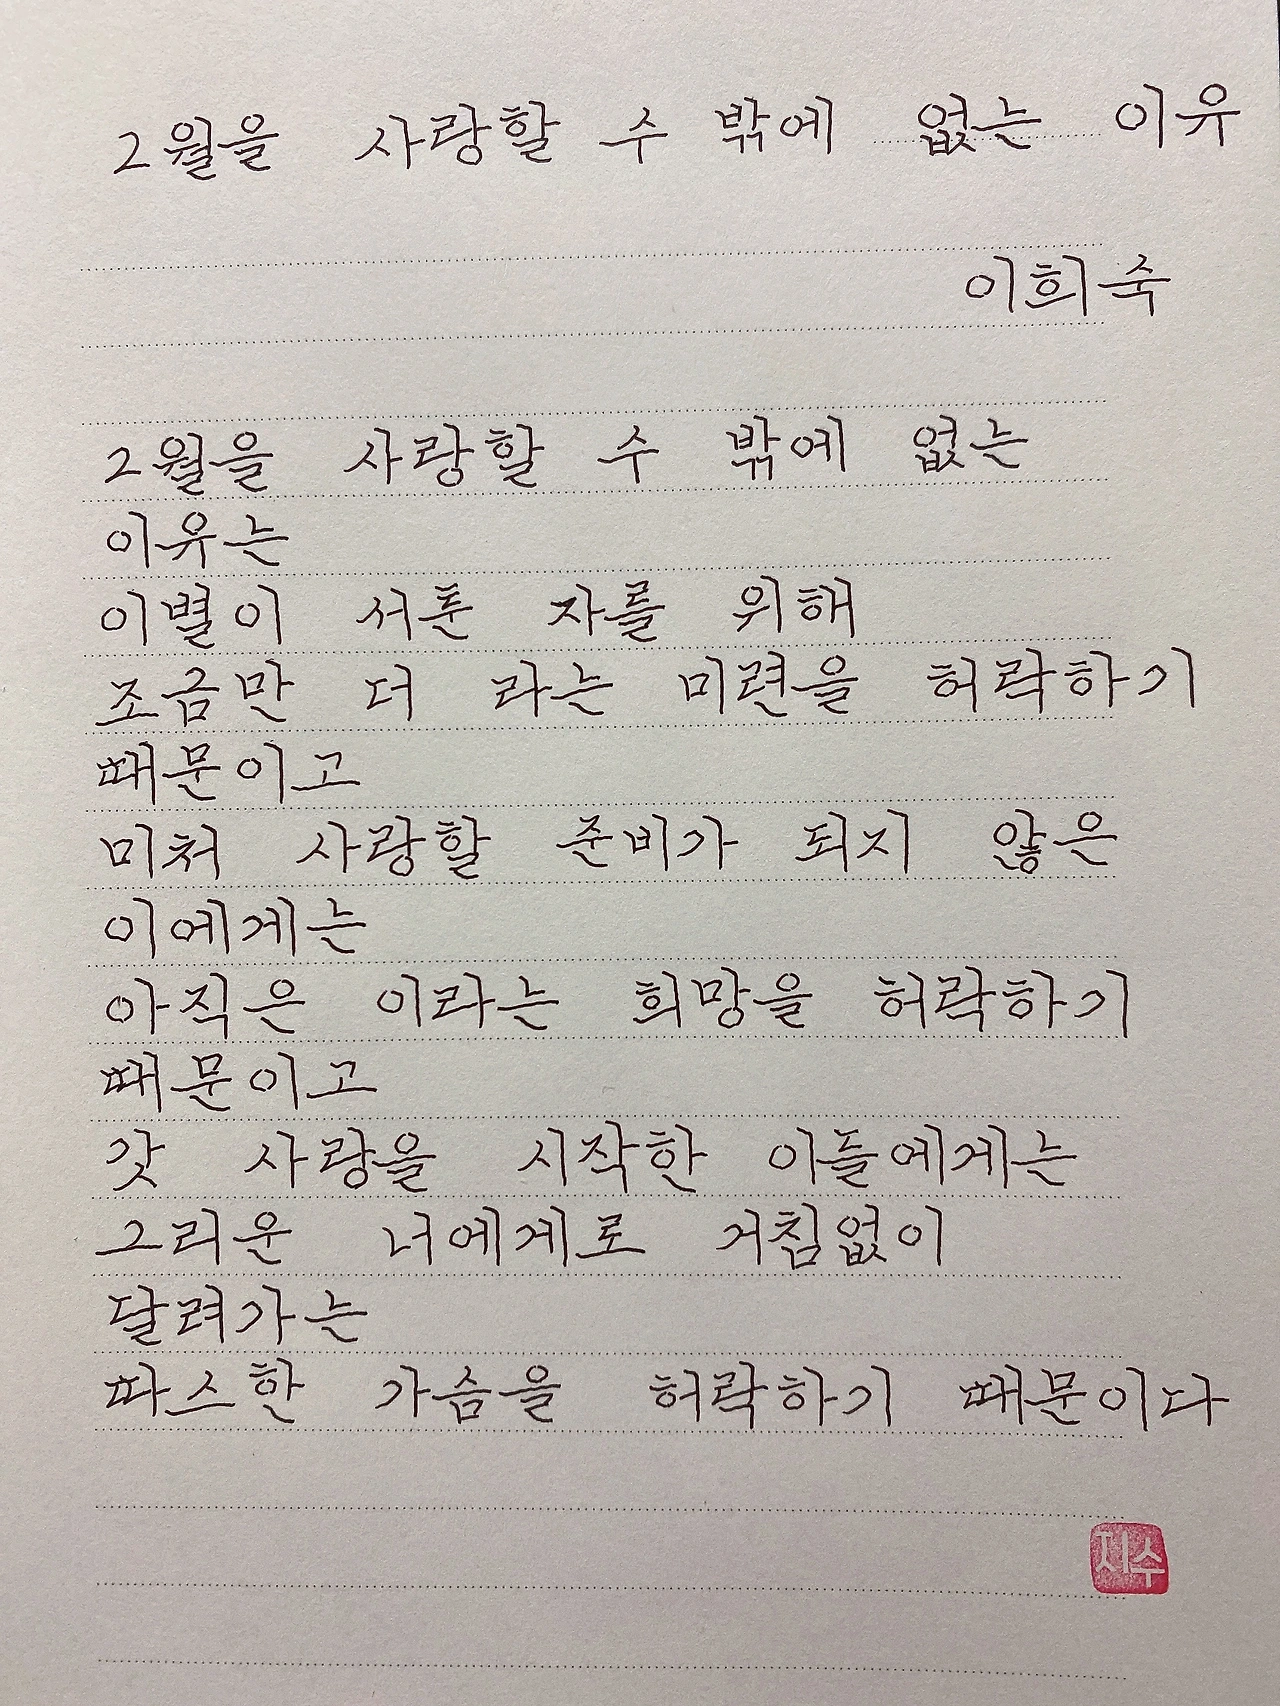 2월을 사랑할 수 밖에 없는 이유
이희숙
2월을 사랑할 수 밖에 없는
이유는
이별이 서툰 자를 위해
조금만 더 라는 미련을 허락하기
때문이고
미처 사랑할 준비가 되지 않은
이에게는
아직은 이라는 희망을 허락하기
때문이고
갓 사랑을 시작한 이들에게는
그리운 너에게로 거침없이
달려가는
따스한 가슴을 허락하기 때문이다
지수